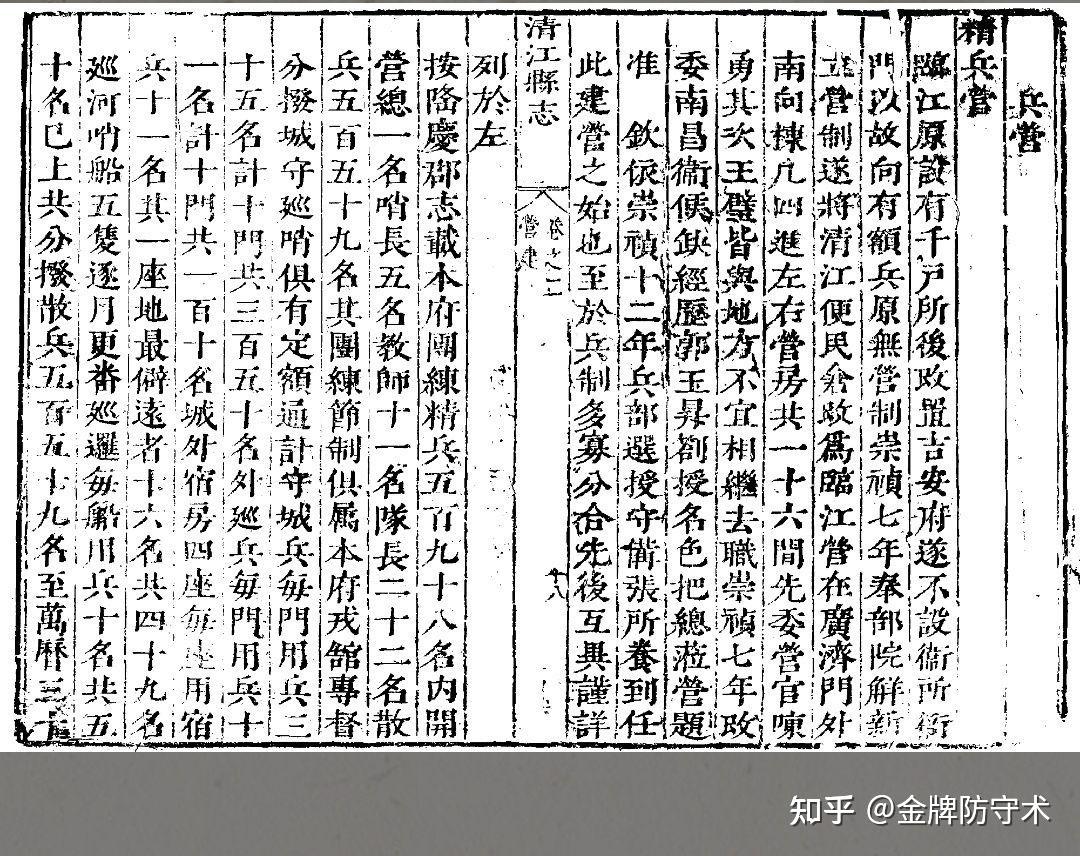 兵營
精兵營
臨江原設有千戸所後改置吉安府遂不設衞所衙
門以故向有額兵原無營制崇禎七年奉部院解新
立營制遂將清江便民倉改爲臨江營在廣濟門外
南向棟凢四進左右營房共一十六間先委營官陳
勇其次王璧皆與地方不宜相繼去職崇禎七年改
委南昌衞便缺經歷郭玉昇劄授名色把總蒞營題
准　欽依崇禎十二年兵部選授守備張所養到任
此建營之始也至於兵制多寡分合先後互異謹詳
清江縣志
卷之二
營建
十八
列於左
按隆慶郡志載本府團練精兵五百九十八名内開
營總一名哨長五名教師十一名隊長二十二名散
兵五百五十九名其團練節制俱屬本府戎舘專督
分撥城守廵哨俱有定額通計守城兵每門用兵三
十五名計十門共三百五十名外廵兵每門用兵十
一名計十門共一百十名城外宿房四座每座用宿
兵十一名其一座地最僻遠者十六名共四十九名
廵河哨船五隻逐月更番廵邏每船用兵十名共五
十名已上共分撥散兵五百五十九名至萬曆三十
知乎 @金牌防守术